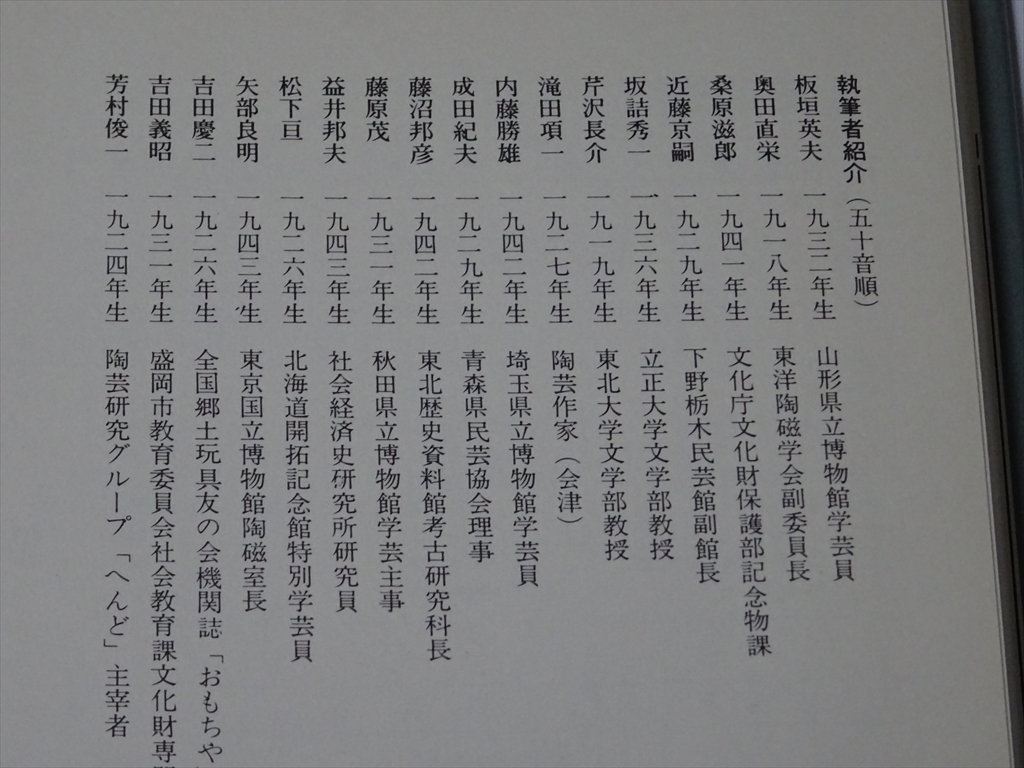 執筆者紹介（五十音順）
板垣英夫 一九三二年生 山形県立博物館学芸員
奥田直栄 一九一八年生 東洋陶磁学会副委員長
桑原滋郎 一九四一年生 文化庁文化財保護部記念物課
近藤京嗣 一九二九年生 下野栃木民芸館副館長
坂詰秀一 一九三六年生 立正大学文学部教授
芹沢長介 一九一九年生 東北大学文学部教授
滝田項一 一九二七年生 陶芸作家（会津）
内藤勝雄 一九四二年生 埼玉県立博物館学芸員
成田紀夫 一九二九年生 青森県民芸協会理事
藤沼邦彦 一九四二年生 東北歴史資料館考古研究科長
藤原茂 一九三一年生 秋田県立博物館学芸主事
益井邦夫 一九四三年生 社会経済史研究所研究員
松下亘 一九二六年生 北海道開拓記念館特別学芸員
矢部良明 一九四三年生 東京国立博物館陶磁室長
吉田慶二 一九二六年生 全国郷土玩具友の会機関誌「おもちゃ
吉田義昭 一九三一年生 盛岡市教育委員会社会教育課文化財専
芳村俊一 一九二四年生 陶芸研究グループ「へんど」主宰者